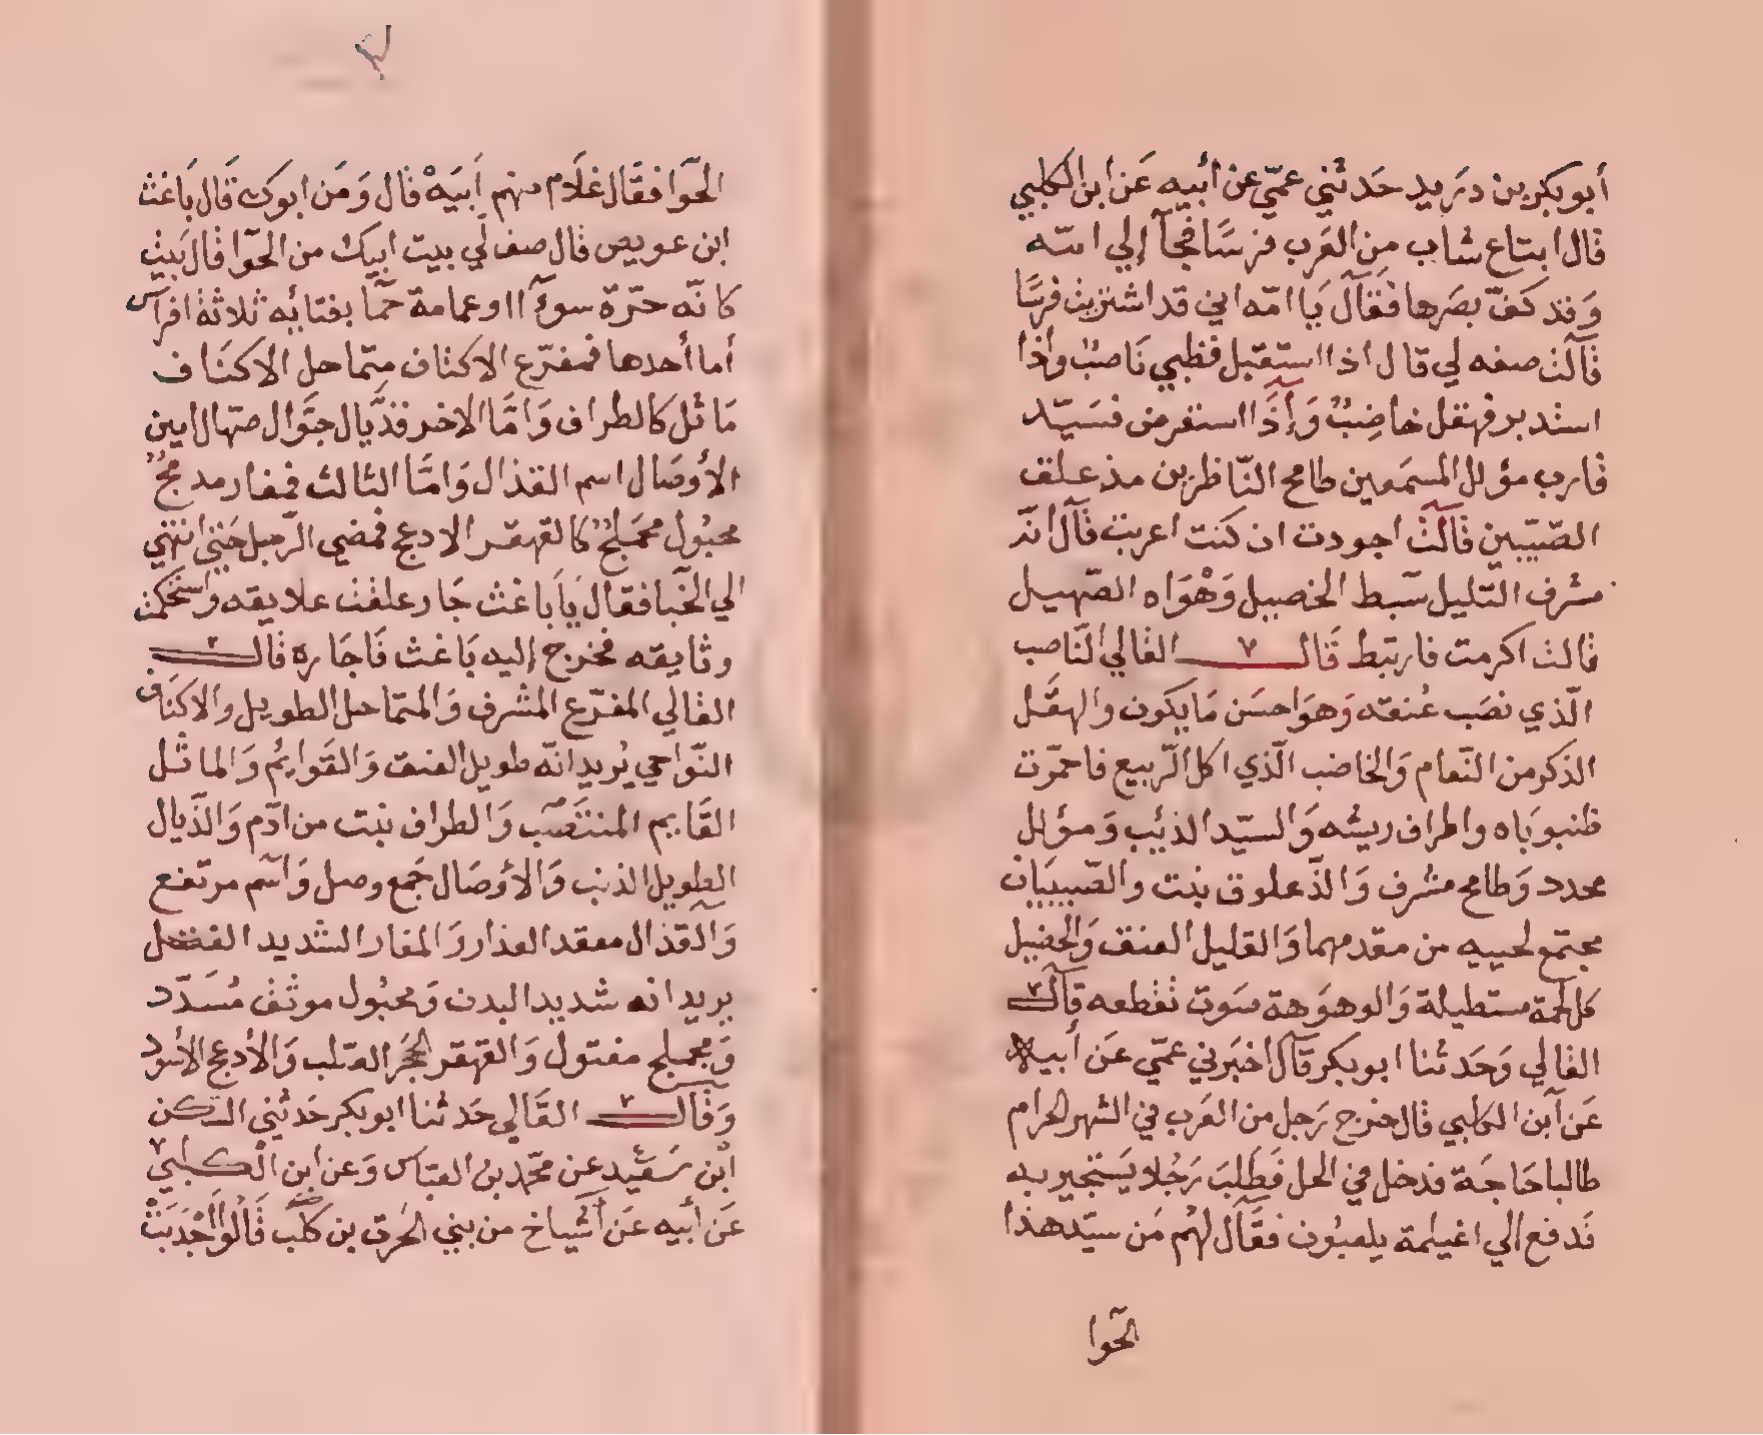 أبو بكر بن دريد حَدثني عمّي عن أبيه عَن ابن الكلبي
قال ابتاع شاب من العَرب فرسًا فجآ إلي امّه
وَقد كفّ بصَرها فقآل يا امّه اني قد اشتريت فرسًا
قآلت صفه لي قال اذا استقبل فظبي نَاصبٌ واذا
استدبر فهقل خاضِبٌ وَإذَا استعرض فسَيّد
قارب مؤلل المسمَعين طامح النّاظرين مذعلق
الصّبيين قَالَت اجودت ان كنت اعربت قآل انّه
مشرف التليل سبط الخصيل وَهْوَاه الصّهيل
قالت اكرمت فارتبط قَال القالي النّاصب
الّذي نصَب عُنقه وَهوَ احسَن مَا يكون والهقل
الذكر من النّعام وَالخاضب الّذي اكل الرّبيع فاحمّرت
ظنبوبَاه واطراف ريشه وَالسيّد الذئيب وَمؤلل
محدد وَطامح مشرف وَالذّعلوق نبت والصّبيبَان
مجتمع لحييه من مقدمهما وَالقليل العنق وَالخصيل
كل لحمة مستطيلة وَالوهوَهة صَوت تقطعه قآل
القالي وَحَدثنا ابو بكر قآل اخبَرني عمّي عَن أبيه
عَن آبن الكلبي قال خرج رَجل من العَرب في الشهر الحرام
طالبا حَاجَة فدخل في الحل فَطلبَ رَجُلا يَستجير به
فَدفع الي اغيلمة يلعبُون فقآل لهُم مَن سيّد هذا
الحوّا
الحوّا فقال غلَام منهم اَبيَهْ قال وَمَن ابوك قَال بَاغث
ابن عويص قال صف لي بيت ابيك من الحوّا قال بَيت
كانّه حرّة سودآ او عمامة حمّا بفنائِه ثلاثة افراس
أما أحدها فمفرّع الاكتاف متّماحل الاكنَاف
مَاثل كالطراف وَامَّا الاخر فذيّال جَوّال صهّال امين
الأوصَال اسم القذال وَامَّا الثالث فمغار مدمجٌ
محبُول محمَلجٌ كالقهقر الادعج فمضي الرّجل حَتي انتهي
الي الخبا فقال يَا بَاغث جَار علقت علايقه واستحكمت
وثايقه فخرج إليه بَاغث فَاجَاره قال
القالي المفرّع المشرف وَالمتماحل الطويل والاكنَاف
النّواحي يُريد انّه طويل العنق وَالقوايم وَالماثل
القَايم المنتَصَب وَالطراف بَيت من ادَم وَالذّيال
الطويل الذنب وَالأوصَال جَمع وصل وَآسم مرتفع
وَالقذال معقد العذار وَالمغار الشديد الفتل
يريد انه شديد البدن وَمحبُول موثقْ مُسَدّد
وَمحملج مفتول وَالقهقر الحجَر الصّلب وَالأدعج الأسود
وَقال القالي حَدثنا ابو بكر حَدثني السكن
ابْن سَعْيد عن محّمد بن العبّاس وَعن ابن الْكلبي
عَن أبيه عَن أشياخ من بني الحَرق بن كلب قَالُوا اَجْدَبَتْ